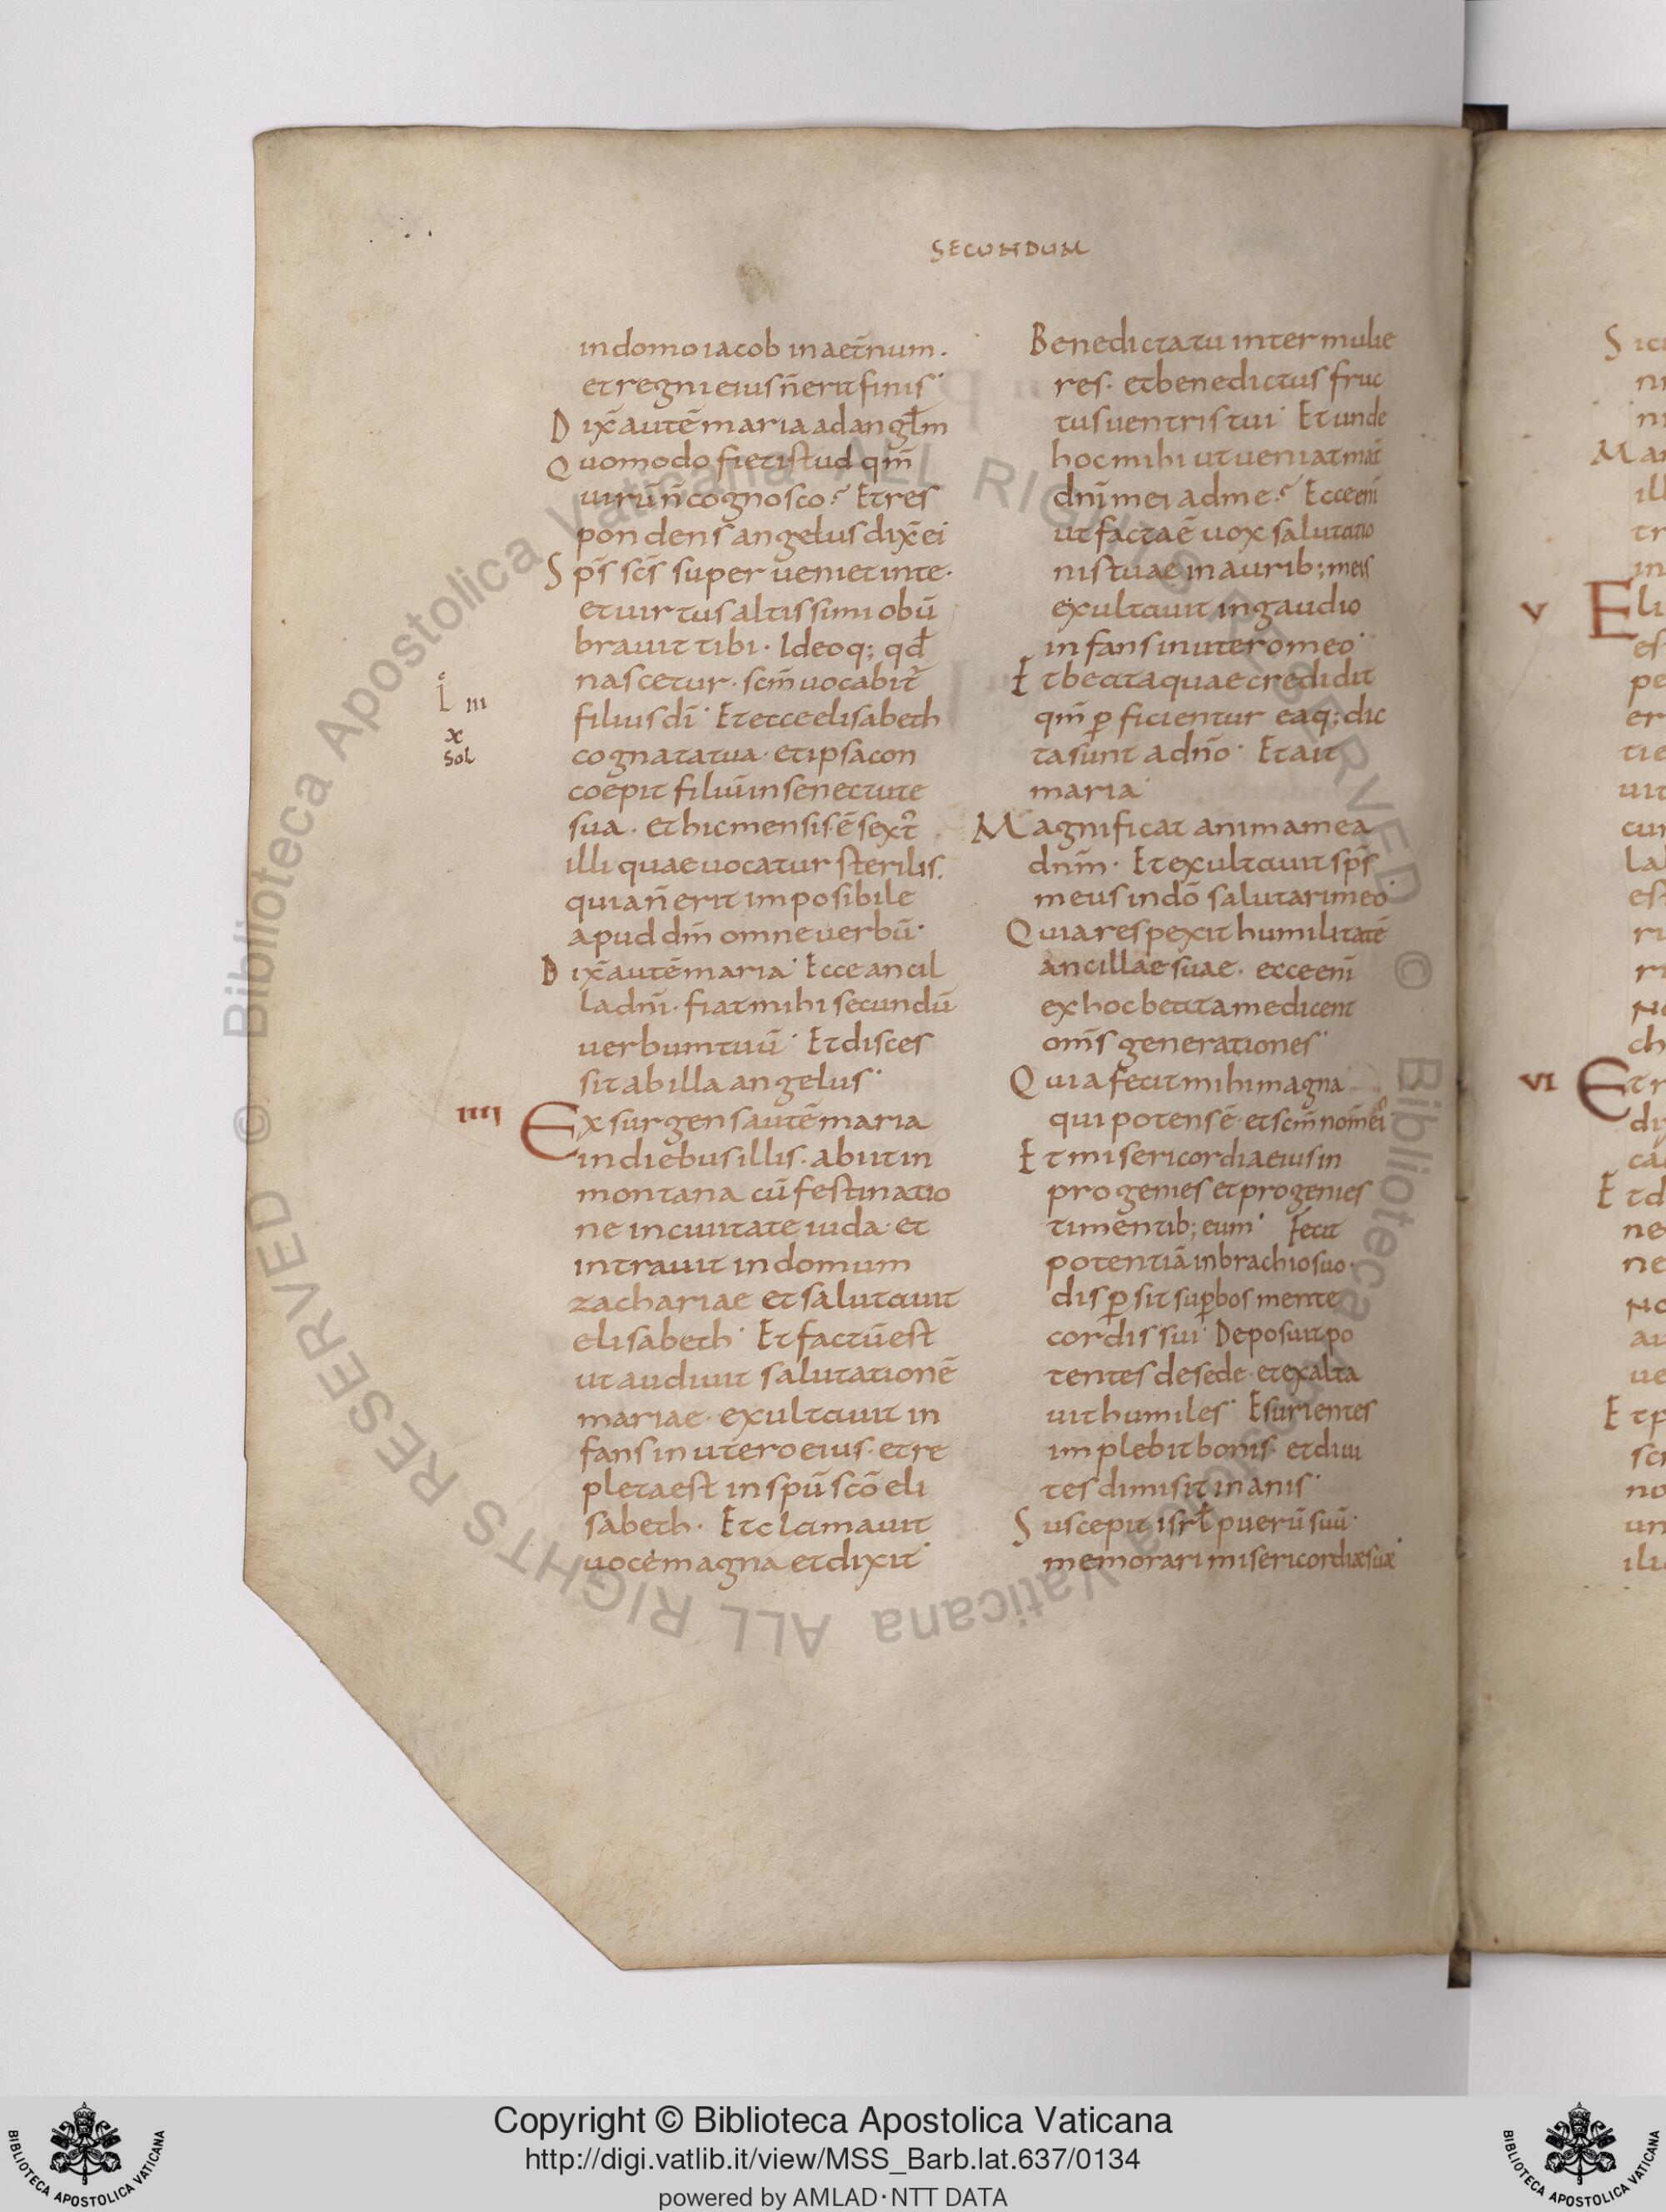 SECUNDUM
indomo iacob inaet̄num.
et regni eius n̄ erit finis·
Dix̄ autē maria ad angłm
Quomodo fiet istud qm̄
uirū n̄ cognosco? Et res
pondens angelus dix̄ ei
Sp̄s sc̄s super ueniet in te·
et uirtus altissimi obū
brauit tibi· Ideoq; qd̄
nascetur· scm̄ uocabit̄
L̊ III
filius dī· Et ecce elisabeth
x
cognata tua· et ipsa con
Sol
coepit filiū in senectute
sua· et hic mensis ē sext̄
illi quae uocatur sterilis.
quia n̄ erit imposibile
apud dm̄ omne uerbū·
Dix̄ autē maria· Ecce ancil
la dnī· fiat mihi secundū
uerbum tuū· Et disces
sit ab illa angelus·
IIII
Exsurgens autē maria
in diebus illis· abiit in
montana cū festinatio
ne in ciuitate iuda· et
intrauit in domum
zachariae et salutauit
elisabeth· Et factū est
ut audiuit salutationē
mariae· exultauit in
fans in utero eius· et re
pleta est in spū scō eli
sabeth· Et clamauit
uoce magna et dixit·
Benedicta tu inter mulie
res· et benedictus fruc
tus uentris tui· Et unde
hoc mihi ut ueniat mat̄
dnī mei ad me? Ecce enī
ut facta ē uox salutatio
nis tuae in aurib; meis
exultauit in gaudio
infans in utero meo·
Et beata quae credidit
qm̄ ꝑficientur ea q; dic
ta sunt a dnō· Et ait
maria·
Magnificat anima mea
dnm̄· Et exultauit sp̄s
meus in dō salutari meo·
Quia respexit humilitatē
ancillae suae· ecce enī
ex hoc beata me dicent
om̄s generationes·
Quia fecit mihi magna
qui potens ē· et scm̄ nom̄ ei᾿
Et misericordia eius in
progenies et progenies
timentib; eum· Fecit
potentiā in brachio suo·
disꝑsit suꝑbos mente
cordis sui· Deposuit po
tentes de sede· et exalta
uit humiles· Esurientes
implebit bonis· et diui
tes dimisit inanis·
Suscepit isrł puerū suū·
memorari misericordiæ suæ·
V
VI
Copyright © Biblioteca Apostolica Vaticana
http://digi.vatlib.it/view/MSS_Barb.lat.637/0134
powered by AMLAD·NTT DATA
BIBLIOTECA APOSTOLICA VATICANA
BIBLIOTECA APOSTOLICA VATICANA
© Biblioteca Apostolica Vaticana ALL RIGHTS RESERVED
© Biblioteca Apostolica Vaticana ALL RIGHTS RESERVED